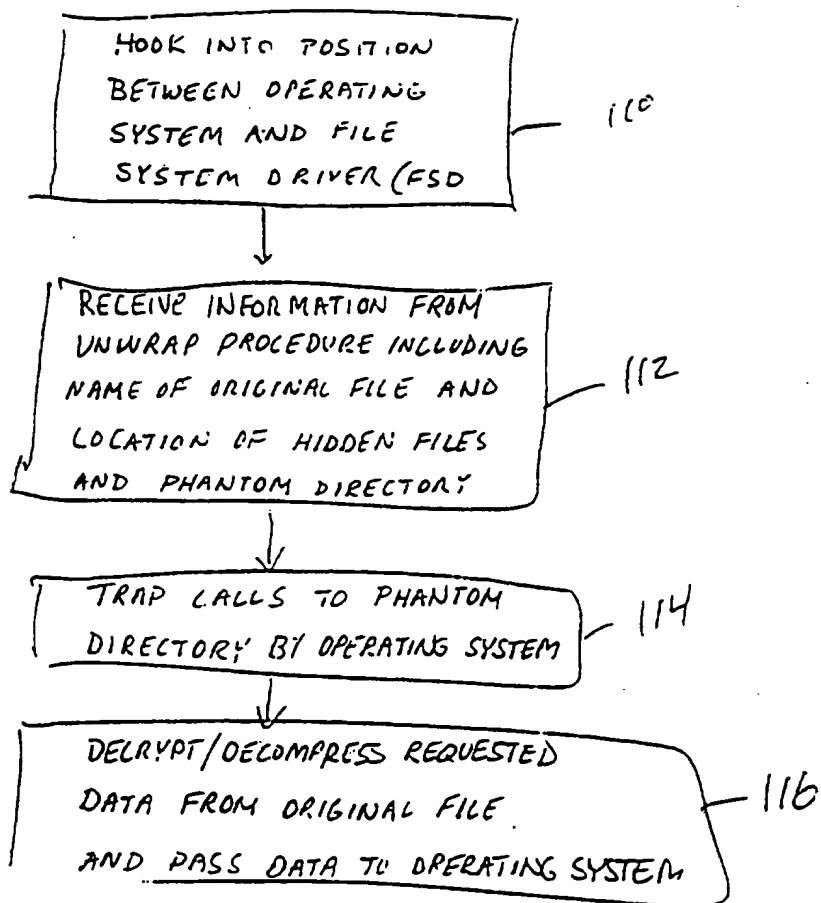 HOOK INTO POSITION
BETWEEN OPERATING
SYSTEM AND FILE
SYSTEM DRIVER (FSD
110
RECEIVE INFORMATION FROM
UNWRAP PROCEDURE INCLUDING
NAME OF ORIGINAL FILE AND
LOCATION OF HIDDEN FILES
AND PHANTOM DIRECTORY
112
TRAP CALLS TO PHANTOM
DIRECTORY BY OPERATING SYSTEM
114
DECRYPT/DECOMPRESS REQUESTED
DATA FROM ORIGINAL FILE
AND PASS DATA TO OPERATING SYSTEM
116